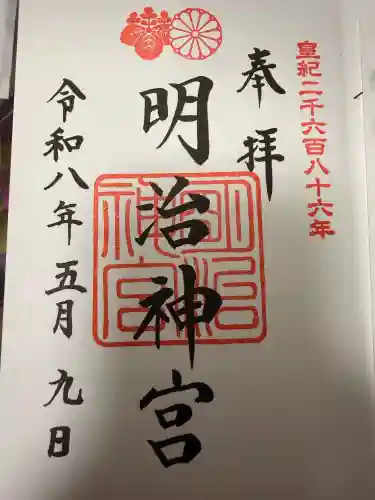 皇紀二千六百八十六年
奉拝
明治神宮
明治
神宮
令和八年五月九日